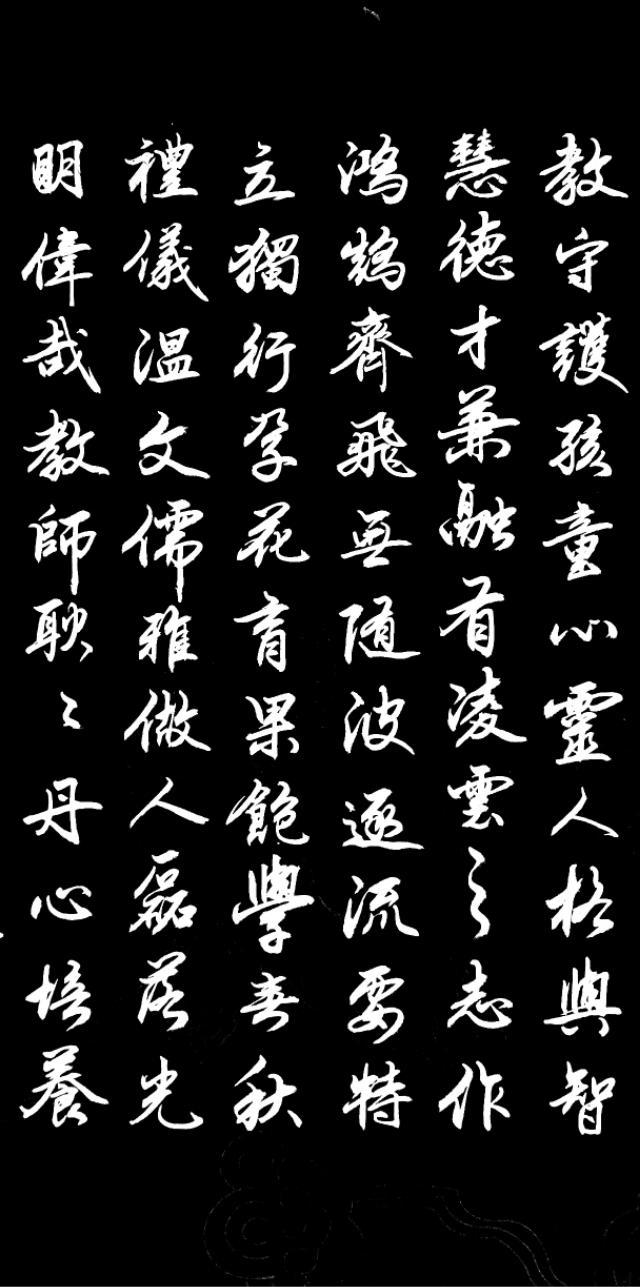 教守護孩童心靈人格與智
慧德才兼融有凌雲之志作
鴻鵠齊飛無随波逐流要特
立獨行孕花育果飽學春秋
禮儀溫文儒雅做人磊落光
明偉哉教師耿〻丹心培養